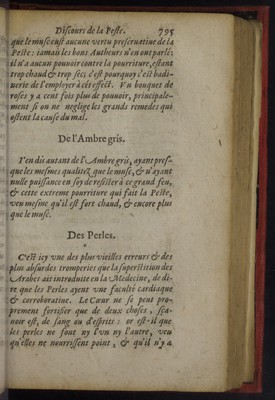 Discours de la Peste. 795
que le musc eust aucune vertu preseruatiue de la
Peste: iamais les bons Autheurs n'en ont parlé:
il n'a aucun pouuoir contre la pourriture, estant
trop chaud & trop sec: c'est pourquoy c'est badi-
nerie de l'employer à cet effect. Vn bouquet de
roses y a cent fois plus de pouuoir, principale-
ment si on ne neglige les grands remedes qui
ostent la cause du mal.
De l'Ambre gris.
I'en dis autant de l'Ambre gris, ayant pres-
que les mesmes qualitez que le musc, & n'ayant
nulle puissance en soy de resister à ce grand feu,
& cette extreme pourriture qui fait la Peste,
veu mesme qu'il est fort chaud, & encore plus
que le musc.
Des Perles.
C'est icy vne des plus vieilles erreurs & des
plus absurdes tromperies que la superstition des
Arabes ait introduite en la Medecine, de di-
re que les Perles ayent vne faculté cardiaque
& corroboratiue. Le Cœur ne se peut pro-
prement fortifier que de deux choses, sça-
uoir est, de sang ou d'esprits: or est-il que
les perles ne font ny l'vn ny l'autre, veu
qu'elles ne nourrissent point, & qu'il n'y a